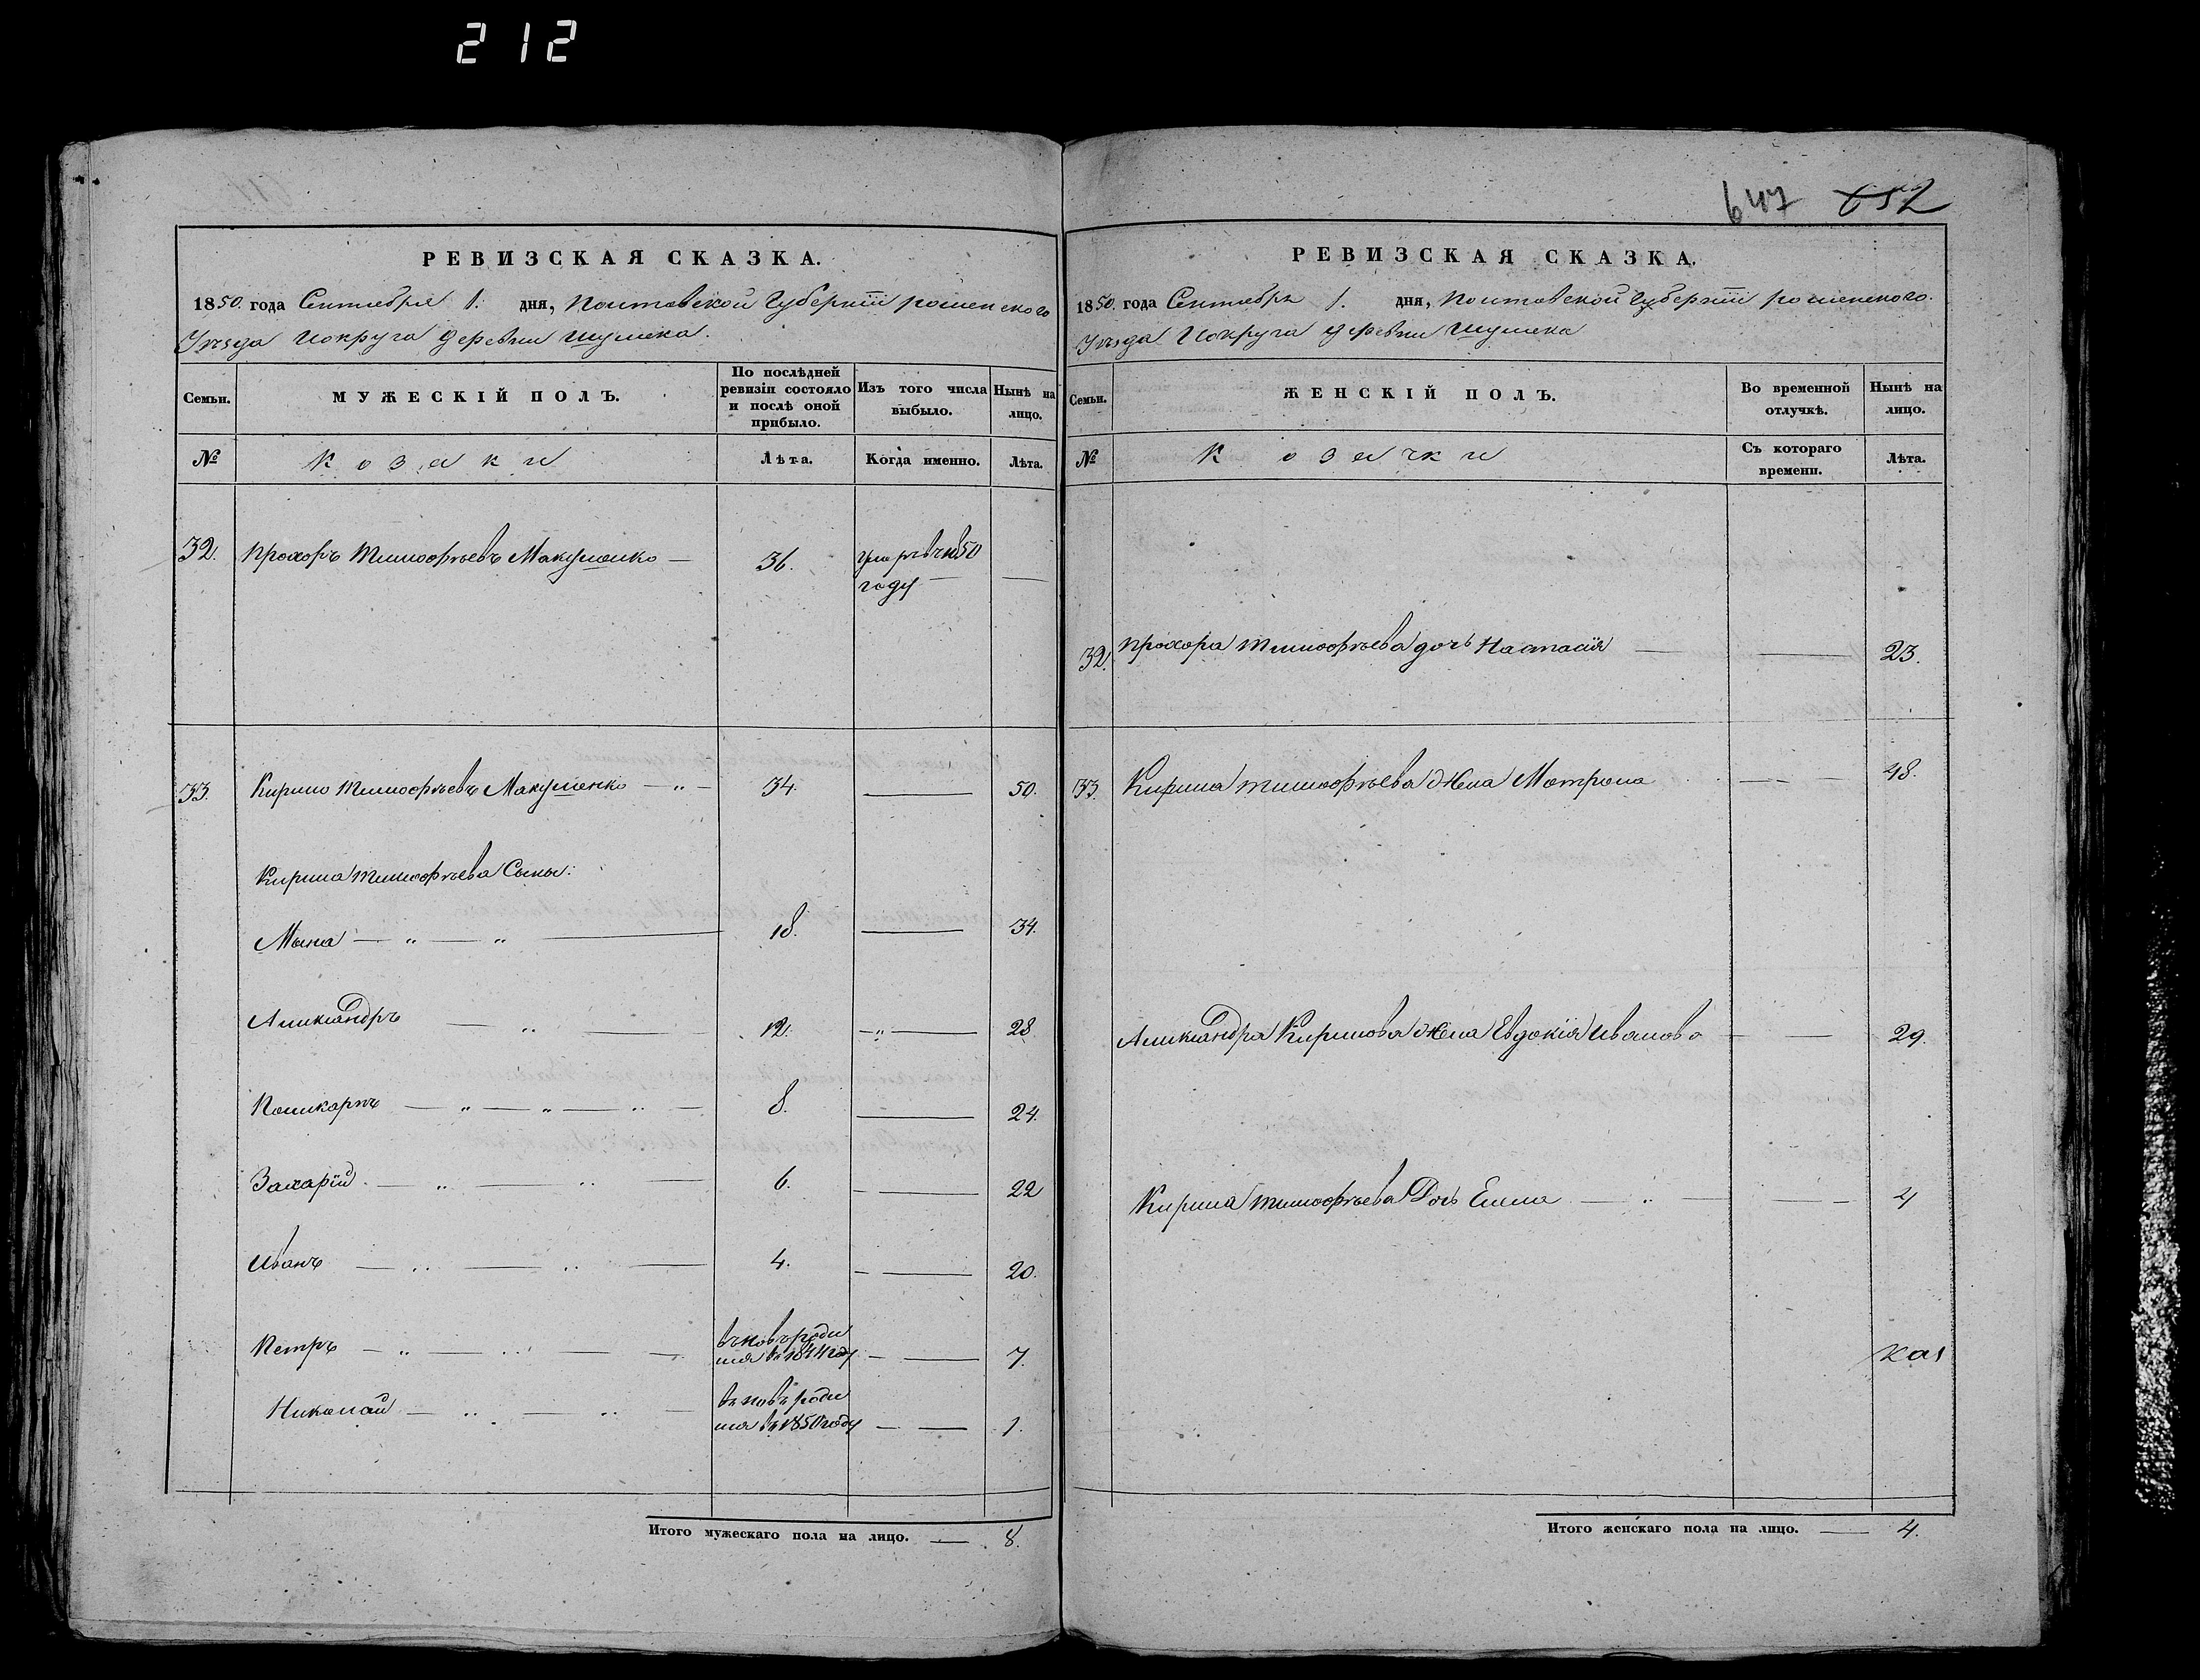 212
647 652
РЕВИЗСКАЯ СКАЗКА.
1850. года Сентября 1. дня, Полтавской Губерніи роменского
Уѣзда Иокруга деревни Шумска.
Семьи. МУЖЕСКІЙ ПОЛЪ. По послѣдней ревизіи состояло и послѣ оной прибыло. Изъ того числа выбыло. Нынѣ на лицо.
№ Козаки Лѣта. Когда именно. Лѣта.
32. Прохоръ Тимофѣевъ Макушенко — 36. умеръ въ 1850
году — —
33. Кирило Тимофѣевъ Макушенко — „ — 34. — 50.
Кирила Тимофѣева Сыны:
Мина — „ — „ — 18. — 34.
Александръ — „ — 12. — „ — 28
Поликарпъ — „ — „ — „ — 8. — 24.
Захарій — „ — „ — 6. — 22
Иванъ — „ — „ — 4. — 20.
Петръ — „ — „ — вновь роди
лся въ 1844 году — 7.
Николай — „ — „ — вновь роди
лся въ 1850 году — 1.
Итого мужескаго пола на лицо. — 8.
РЕВИЗСКАЯ СКАЗКА.
1850. года Сентября 1. дня, Полтавской Губерніи роменского.
Уѣзда Иокруга деревни Шумска
Семьи. ЖЕНСКІЙ ПОЛЪ. Во временной отлучкѣ. Нынѣ на лицо.
№ Козачки Съ котораго времени. Лѣта.
32. Прохора Тимофѣева дочь Настасія — — 23.
33. Кирила Тимофѣева Жена Матрона — — 48.
Александра Кирилова Жена Евдокія Иванова — — 29.
Кирила Тимофѣева Дочь Елена — „ — 4
каз
Итого женскаго пола на лицо. — 4.